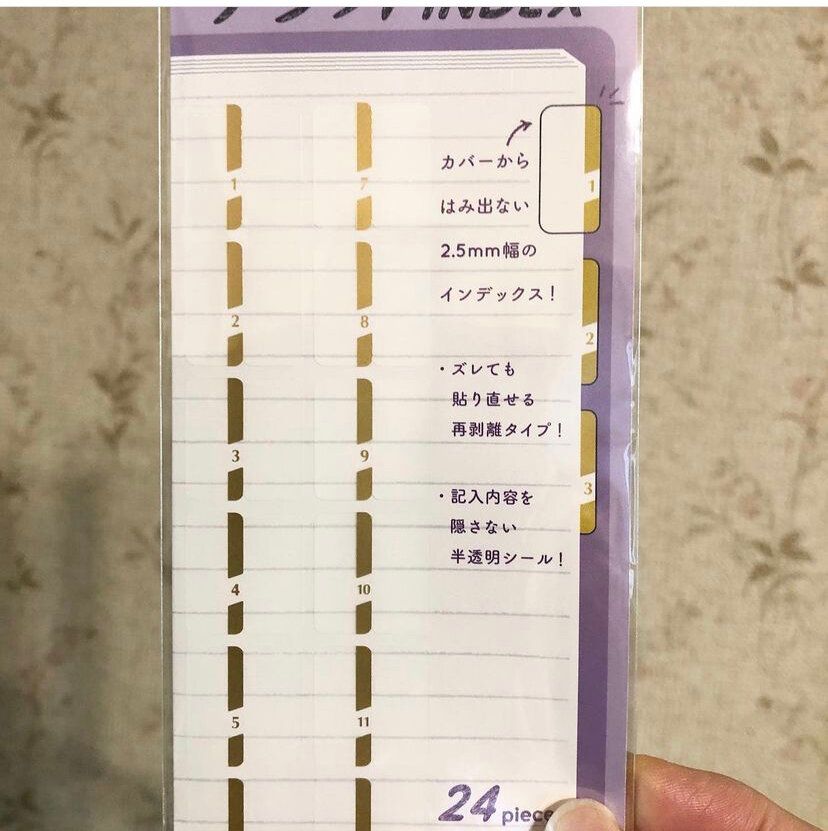 INDEX
カバーから
はみ出ない
2.5mm幅の
インデックス!
・ズレても
貼り直せる
再剥離タイプ!
・記入内容を
隠さない
半透明シール!
1
2
3
1
7
2
8
3
9
4
10
5
11
24 piece